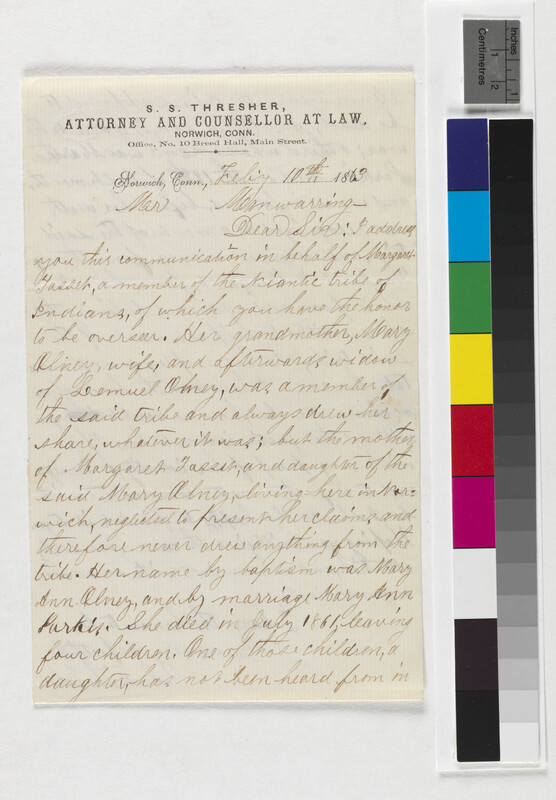 S. S. THRESHER,
ATTORNEY AND COUNSELLOR AT LAW,
NORWICH, CONN.
Office, No. 10 Breed Hall, Main Street.
Norwich, Conn., Feb'y 10th 1863
Mr Manwarring
Dear Sir: I address
you this communication in behalf of Margaret
Fasset, a member of the Niantic tribe of
Indians, of which you have the honor
to be overseer. Her grandmother, Mary
Olney, wife, and afterwards widow
of Lemuel Olney, was a member of
the said tribe and always drew her
share, whatever it was; but the mother
of Margaret Fasset, and daughter of the
said Mary Olney, living here in Nor-
wich, neglected to present her claim, and
therefore never drew anything from the
tribe. Her name by baptism was Mary
Ann Olney, and by marriage Mary Ann
Parkis. She died in July 1861, leaving
four children. One of those children, a
daughter, has not been heard from in
Inches
1
Centimetres
2